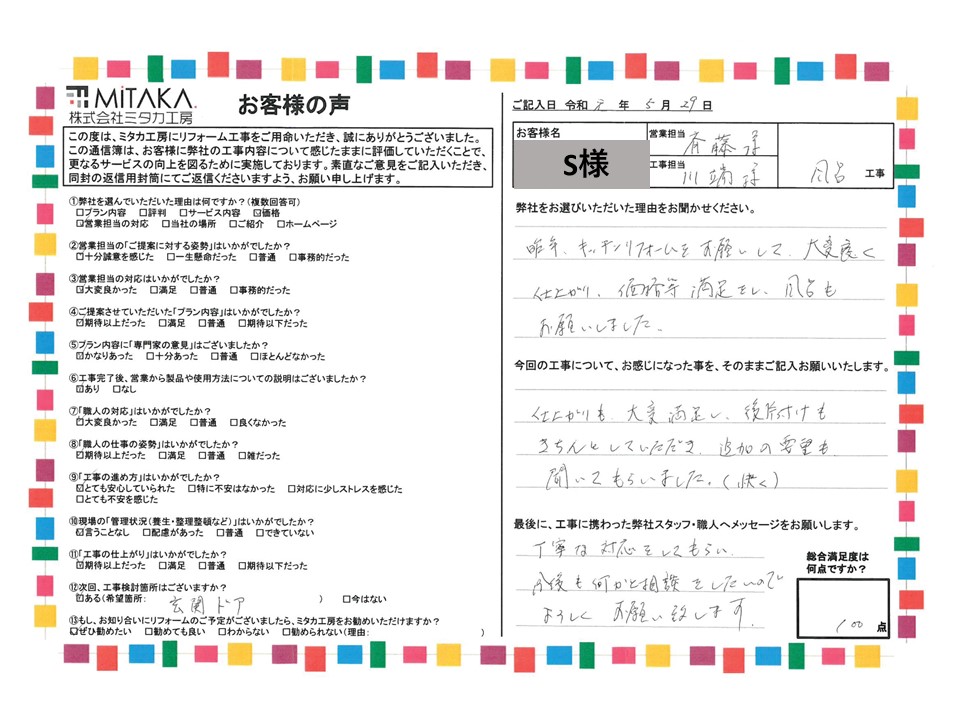 MiTAKA
株式会社ミタカ工房
お客様の声
この度は、ミタカ工房にリフォーム工事をご用命いただき、誠にありがとうございました。
この通信簿は、お客様に弊社の工事内容について感じたままに評価していただくことで、
更なるサービスの向上を図るために実施しております。素直なご意見をご記入いただき、
同封の返信用封筒にてご返信くださいますよう、お願い申し上げます。
①弊社を選んでいただいた理由は何ですか？(複数回答可)
□プラン内容 □評判 □サービス内容 ☑価格
☑営業担当の対応 □当社の場所 □ご紹介 □ホームページ
②営業担当の「ご提案に対する姿勢」はいかがでしたか？
☑十分誠意を感じた □一生懸命だった □普通 □事務的だった
③営業担当の対応はいかがでしたか？
☑大変良かった □満足 □普通 □事務的だった
④ご提案させていただいた「プラン内容」はいかがでしたか？
☑期待以上だった □満足 □普通 □期待以下だった
⑤プラン内容に「専門家の意見」はございましたか？
☑かなりあった □十分あった □普通 □ほとんどなかった
⑥工事完了後、営業から製品や使用方法についての説明はございましたか？
☑あり □なし
⑦「職人の対応」はいかがでしたか？
☑大変良かった □満足 □普通 □良くなかった
⑧「職人の仕事の姿勢」はいかがでしたか？
☑期待以上だった □満足 □普通 □雑だった
⑨「工事の進め方」はいかがでしたか？
☑とても安心していられた □特に不安はなかった □対応に少しストレスを感じた
□とても不安を感じた
⑩現場の「管理状況(養生・整理整頓など)」はいかがでしたか？
☑言うことなし □配慮があった □普通 □できていない
⑪「工事の仕上がり」はいかがでしたか？
☑期待以上だった □満足 □普通 □期待以下だった
⑫次回、工事検討箇所はございますか？
☑ある(希望箇所: 玄関ドア ) □今はない
⑬もし、お知り合いにリフォームのご予定がございましたら、ミタカ工房をお勧めいただけますか？
☑ぜひ勧めたい □勧めても良い □わからない □勧められない(理由: )
ご記入日 令和 元 年 5 月 29 日
お客様名
S様
営業担当 斉藤 様
工事担当 川端 様
風呂 工事
弊社をお選びいただいた理由をお聞かせください。
昨年、キッチンリフォームをお願いして、大変良く
仕上がり、価格等満足をし、風呂も
お願いしました。
今回の工事について、お感じになった事を、そのままご記入お願いいたします。
仕上がりも、大変満足し、後片付けも
きちんとしていただき、追加の要望も
聞いてもらいました。(快く)
最後に、工事に携わった弊社スタッフ・職人へメッセージをお願いします。
丁寧な対応をしてもらい、
今後も何かと相談をしたいので
よろしくお願い致します。
総合満足度は
何点ですか？
100 点